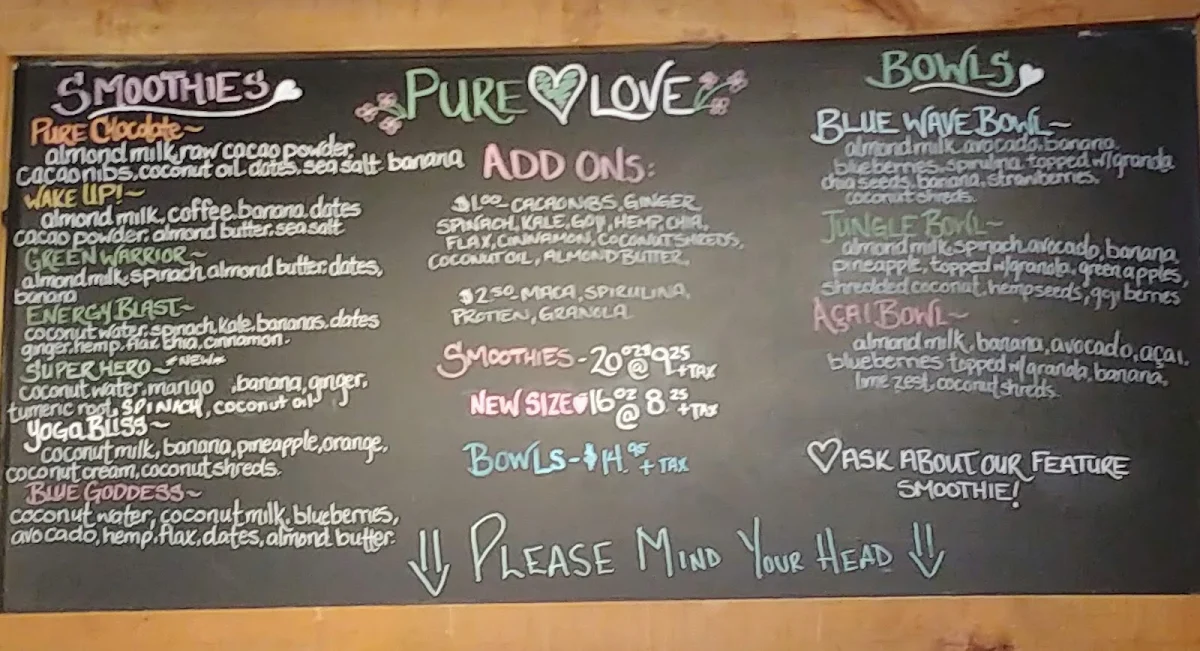 SMOOTHIES
PURE CHocolate~
almond milk, raw cacao powder,
cacao nibs, coconut oil dates, sea salt banana
WAKE UP!~
almond milk, coffee, banana, dates
cacao powder, almond butter, sea salt
GREEN WARRIOR~
almond milk, spinach almond butter, dates,
banana
ENERGY BLAST~
coconut water, spinach, kale, bananas, dates
ginger, hemp, flax chia, cinnamon.
SUPER HERO~ *NEW*
coconut water, mango , banana, ginger,
tumeric root, SPINACH, coconut oil
YOGA BLISS~
coconut milk, banana, pineapple, orange,
coconut cream, coconut shreds.
BLUE GODDESS~
coconut water, coconut milk, blueberries,
avocado, hemp, flax, dates, almond butter.
PURE LOVE
ADD ONS:
$1.00-CACAO NIBS, GINGER
SPINACH, KALE, GOJI, HEMP, CHIA,
FLAX, CINNAMON, COCONUT SHREDS,
COCONUT OIL, ALMOND BUTTER,
$2.50-MACA, SPIRULINA,
PROTIEN, GRANOLA
SMOOTHIES - 20oz @ 9.25 + TAX
NEW SIZE 16oz @ 8.25 + TAX
BOWLS - $14.95 + TAX
BOWLS
BLUE WAVE BOWL~
almond milk, avocado, banana
blueberries, spirulina, topped w/granola
chia seeds, banana, strawberries,
coconut shreds.
JUNGLE BOWL~
almond milk, spinach, avocado, banana
pineapple, topped w/granola, green apples,
shredded coconut, hemp seeds, goji berries
AÇAI BOWL~
almond milk, banana, avocado, açai,
blueberries topped w/granola, banana,
lime zest, coconut shreds.
ASK ABOUT OUR FEATURE
SMOOTHIE!
PLEASE MIND YOUR HEAD